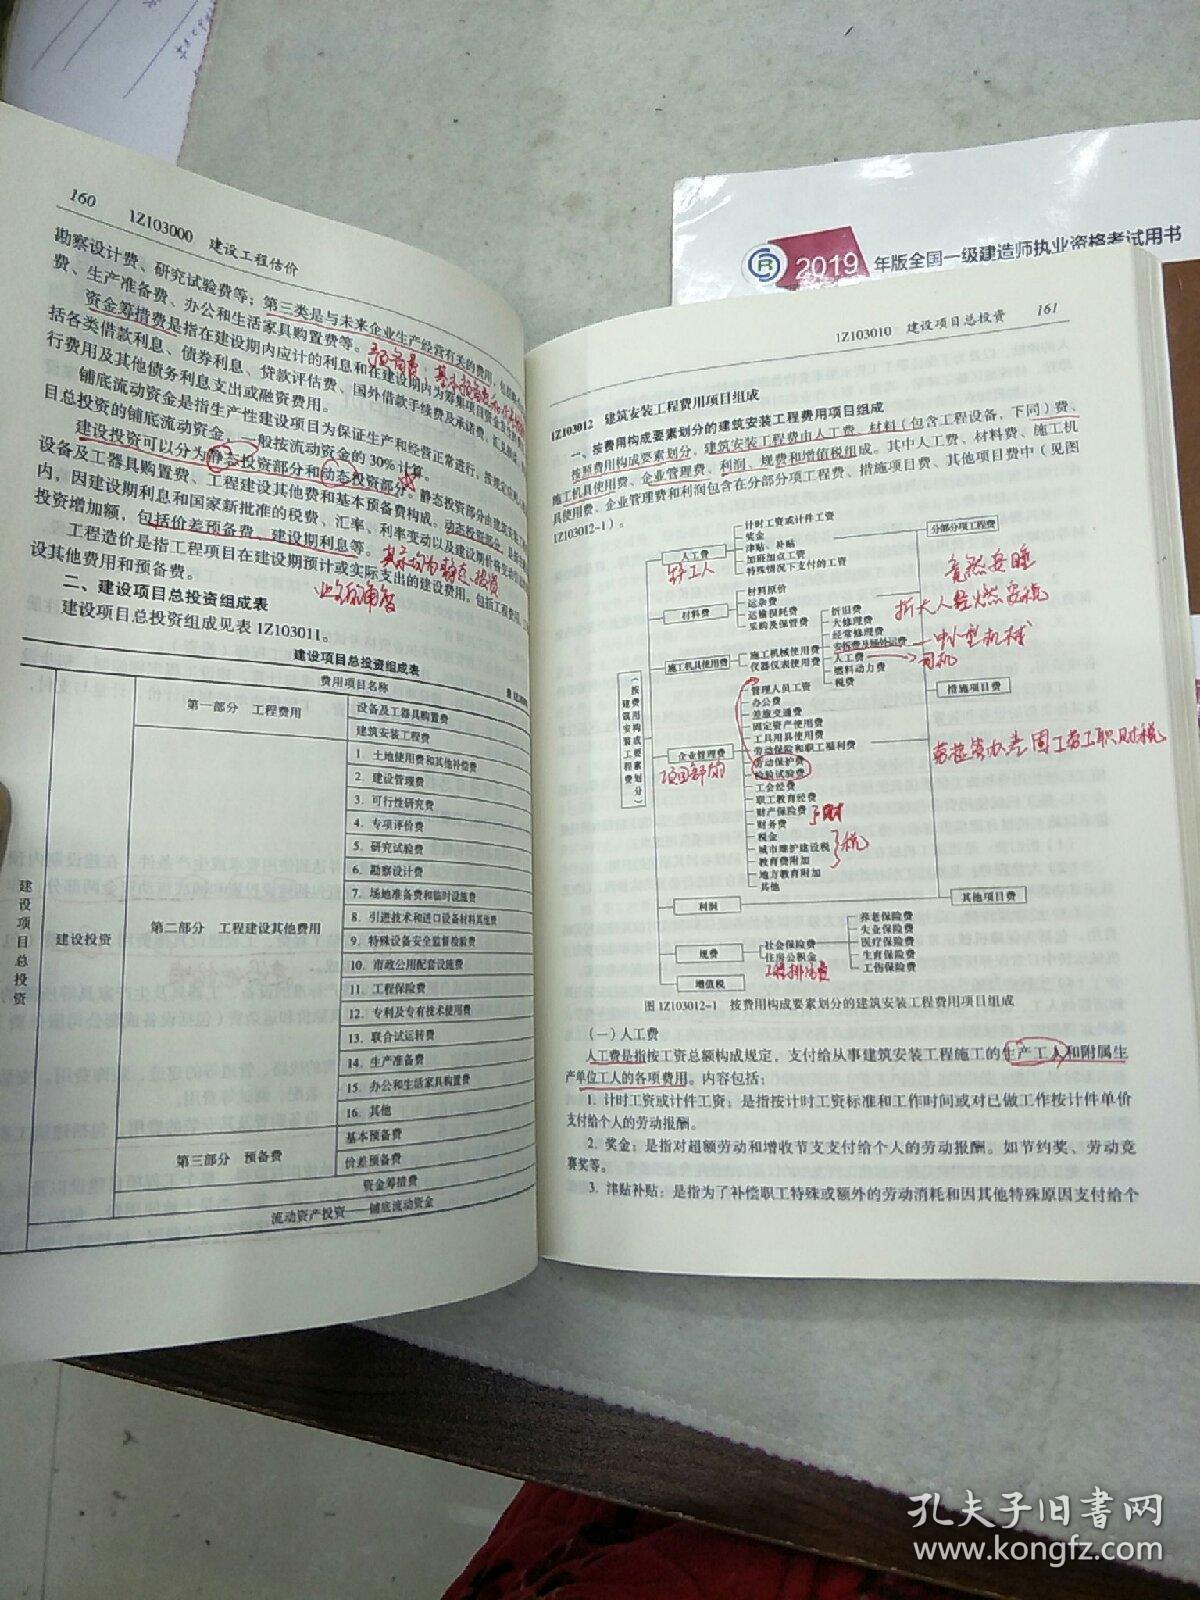 160 1Z103000 建设工程估价
勘察设计费、研究试验费等；第三类是与未来企业生产经营有关的费用，包括
费、生产准备费、办公和生活家具购置费等。
资金筹措费是指在建设期内应计的利息和在建设期内为筹集项目资金发生的费用，包
括各类借款利息、债券利息、贷款评估费、国外借款手续费及承诺费、汇兑损益、
行费用及其他债务利息支出或融资费用。
铺底流动资金是指生产性建设项目为保证生产和经营正常进行，按规定
目总投资的铺底流动资金，一般按流动资金的30%计算。
建设投资可以分为静态投资部分和动态投资部分。静态投资部分由建筑安装工程费、
设备及工器具购置费、工程建设其他费和基本预备费构成。动态投资部分，是指在建设期
内，因建设期利息和国家新批准的税费、汇率、利率变动以及建设期价格变动引起的
投资增加额，包括价差预备费、建设期利息等。
工程造价是指工程项目在建设期预计或实际支出的建设费用。包括工程费用、工程建
设其他费用和预备费。
二、建设项目总投资组成表
建设项目总投资组成见表1Z103011。
建设项目总投资组成表
费用项目名称
建设项目总投资
建设投资
第一部分 工程费用
设备及工器具购置费
建筑安装工程费
第二部分 工程建设其他费用
1. 土地使用费和其他补偿费
2. 建设管理费
3. 可行性研究费
4. 专项评价费
5. 研究试验费
6. 勘察设计费
7. 场地准备费和临时设施费
8. 引进技术和进口设备材料其他费
9. 特殊设备安全监督检验费
10. 市政公用配套设施费
11. 工程保险费
12. 专利及专有技术使用费
13. 联合试运转费
14. 生产准备费
15. 办公和生活家具购置费
16. 其他
第三部分 预备费
基本预备费
价差预备费
资金筹措费
流动资产投资——铺底流动资金
2019 年版全国一级建造师执业资格考试用书
1Z103010 建设项目总投资 161
1Z103012 建筑安装工程费用项目组成
一、按费用构成要素划分的建筑安装工程费用项目组成
按照费用构成要素划分，建筑安装工程费由人工费、材料（包含工程设备，下同）费、
施工机具使用费、企业管理费、利润、规费和增值税组成。其中人工费、材料费、施工机
具使用费、企业管理费和利润包含在分部分项工程费、措施项目费、其他项目费中（见图
1Z103012-1）。
建筑安装工程费
（按费用构成要素划分）
人工费
计时工资或计件工资
奖金
津贴、补贴
加班加点工资
特殊情况下支付的工资
材料费
材料原价
运杂费
运输损耗费
采购及保管费
施工机具使用费
施工机械使用费
仪器仪表使用费
折旧费
大修理费
经常修理费
安拆费及场外运费
人工费
燃料动力费
税费
司机
中小型机械
折大人经燃安税
企业管理费
管理人员工资
办公费
差旅交通费
固定资产使用费
工具用具使用费
劳动保险和职工福利费
劳动保护费
检验试验费
工会经费
职工教育经费
财产保险费
财务费
税金
城市维护建设税
教育费附加
地方教育附加
其他
财
税
利润
规费
社会保险费
住房公积金
养老保险费
失业保险费
医疗保险费
生育保险费
工伤保险费
工程排污费
增值税
分部分项工程费
措施项目费
其他项目费
图1Z103012-1 按费用构成要素划分的建筑安装工程费用项目组成
（一）人工费
人工费是指按工资总额构成规定，支付给从事建筑安装工程施工的生产工人和附属生
产单位工人的各项费用。内容包括：
1. 计时工资或计件工资：是指按计时工资标准和工作时间或对已做工作按计件单价
支付给个人的劳动报酬。
2. 奖金：是指对超额劳动和增收节支支付给个人的劳动报酬。如节约奖、劳动竞
赛奖等。
3. 津贴补贴：是指为了补偿职工特殊或额外的劳动消耗和因其他特殊原因支付给个
孔夫子旧书网
www.kongfz.com